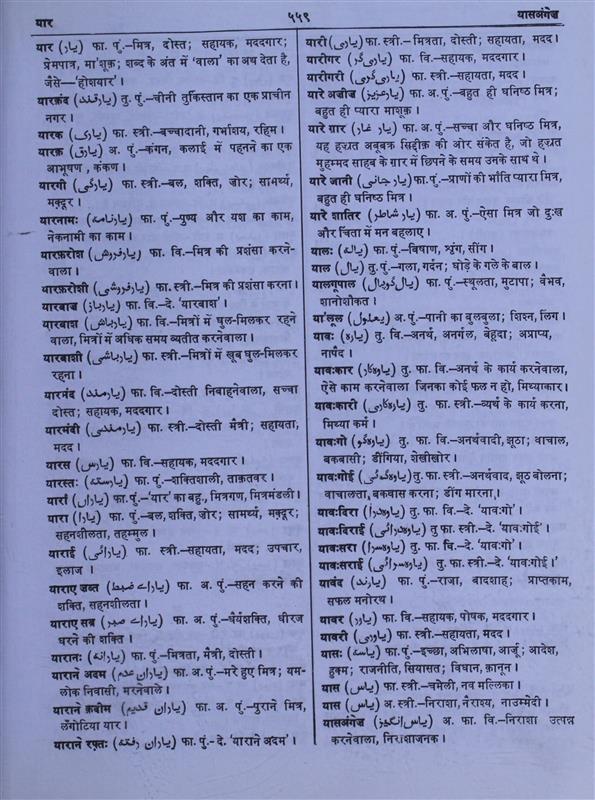 यार
५५९
यासअंगेज़
यार (یار) फा. पुं.–मित्र, दोस्त; सहायक, मददगार;
प्रेमपात्र, मा'शूक़; शब्द के अंत में 'वाला' का अथ देता है,
जैसे–'होशयार'।
यारक़ंद (یارقند) तु. पुं.–चीनी तुर्किस्तान का एक प्राचीन
नगर।
यारक (یارک) फा. स्त्री.–बच्चादानी, गर्भाशय, रहिम।
यारक़ (یارق) अ. पुं.–कंगन, कलाई में पहनने का एक
आभूषण, कंकण।
यारगी (یارگی) फा. स्त्री.–बल, शक्ति, ज़ोर; सामर्थ्य,
मक़्दूर।
यारनामः (یارنامہ) फा. पुं.–पुण्य और यश का काम,
नेकनामी का काम।
यारफ़रोश (یارفروش) फा. वि.–मित्र की प्रशंसा करने-
वाला।
यारफ़रोशी (یارفروشی) फा. स्त्री.–मित्र की प्रशंसा करना।
यारबाज़ (یارباز) फा. वि.–दे. 'यारबाश'।
यारबाश (یارباش) फा. वि.–मित्रों में घुल-मिलकर रहने
वाला, मित्रों में अधिक समय व्यतीत करनेवाला।
यारबाशी (یارباشی) फा. स्त्री.–मित्रों में खूब घुल-मिलकर
रहना।
यारमंद (یارمند) फा. वि.–दोस्ती निबाहनेवाला, सच्चा
दोस्त; सहायक, मददगार।
यारमंदी (یارمندی) फा. स्त्री.–दोस्ती मैत्री; सहायता,
मदद।
यारस (یارس) फा. वि.–सहायक, मददगार।
यारस्तः (یارستہ) फा. पुं.–शक्तिशाली, ताक़तवर।
यारां (یاراں) फा. पुं.–'यार' का बहु., मित्रगण, मित्रमंडली।
यारा (یارا) फा. पुं.–बल, शक्ति, ज़ोर; सामर्थ्य, मक़्दूर;
सहनशीलता, तहम्मुल।
याराई (یارائی) फा. स्त्री.–सहायता, मदद; उपचार,
इलाज।
याराए ज़ब्त (یاراے ضبط) फा. अ. पुं.–सहन करने की
शक्ति, सहनशीलता।
याराए सब्र (یاراے صبر) फा. अ. पुं.–धैर्यशक्ति, धीरज
धरने की शक्ति।
यारानः (یارانہ) फा. पुं.–मित्रता, मैत्री, दोस्ती।
याराने अदम (یاران عدم) फा. अ. पुं.–मरे हुए मित्र; यम-
लोक निवासी, मरनेवाले।
याराने क़दीम (یاران قدیم) फा. अ. पुं.–पुराने मित्र,
लँगोटिया यार।
याराने रफ़्तः (یاران رفتہ) फा. पुं.–दे. 'याराने अदम'।
यारी (یاری) फा. स्त्री.–मित्रता, दोस्ती; सहायता, मदद।
यारीगर (یاری گر) फा. वि.–सहायक, मददगार।
यारीगरी (یاری گری) फा. स्त्री.–सहायता, मदद।
यारे अज़ीज़ (یار عزیز) फा. अ. पुं.–बहुत ही घनिष्ठ मित्र;
बहुत ही प्यारा माशूक़।
यारे ग़ार (یار غار) फा. अ. पुं.–सच्चा और घनिष्ठ मित्र,
यह हज़्रत अबूबक्र सिद्दीक़ की ओर संकेत है, जो हज़्रत
मुहम्मद साहब के ग़ार में छिपने के समय उनके साथ थे।
यारे जानी (یار جانی) फा. पुं.–प्राणों की भाँति प्यारा मित्र,
बहुत ही घनिष्ठ मित्र।
यारे शातिर (یار شاطر) फा. अ. पुं.–ऐसा मित्र जो दुःख
और चिंता में मन बहलाए।
यालः (یالہ) फा. पुं.–विषाण, श्रृंग, सींग।
याल (یال) तु. पुं.–गला, गर्दन; घोड़े के गले के बाल।
यालगूपाल (یال گوپال) फा. पुं.–स्थूलता, मुटापा; वैभव,
शानोशौकत।
या'लूल (یعلول) अ. पुं.–पानी का बुलबुला; शिश्न, लिंग।
यावः (یاوہ) तु. वि.–अनर्थ, अनर्गल, बेहूदा; अप्राप्य,
नापैद।
यावःकार (یاوہ کار) तु. फा. वि.–अनर्थ के कार्य करनेवाला,
ऐसे काम करनेवाला जिनका कोई फल न हो, मिथ्याकार।
यावःकारी (یاوہ کاری) तु. फा. स्त्री.–व्यर्थ के कार्य करना,
मिथ्या कर्म।
यावःगो (یاوہ گو) तु. फा. वि.–अनर्थवादी, झूठा; वाचाल,
बकवासी; डींगिया, शेख़ीख़ोर।
यावःगोई (یاوہ گوئی) तु. फा. स्त्री.–अनर्थवाद, झूठ बोलना;
वाचालता, बकवास करना; डींग मारना।
यावःदिरा (یاوہ درا) तु. फा. वि.–दे. 'यावःगो'।
यावःदिराई (یاوہ درائی) तु फा. स्त्री.–दे. 'यावःगोई'।
यावःसरा (یاوہ سرا) तु. फा. वि.–दे. 'यावःगो'।
यावःसराई (یاوہ سرائی) तु. फा. स्त्री.–दे. 'यावःगोई।'
यावंद (یاوند) फा. पुं.–राजा, बादशाह; प्राप्तकाम,
सफल मनोरथ।
यावर (یاور) फा. वि–सहायक, पोषक, मददगार।
यावरी (یاوری) फा. स्त्री.–सहायता, मदद।
यासः (یاسہ) फा. पुं.–इच्छा, अभिलाषा, आर्ज़ू; आदेश,
हुक्म; राजनीति, सियासत; विधान, क़ानून।
यास (یاس) फा. स्त्री.–चमेली, नव मल्लिका।
यास (یاس) अ. स्त्री.–निराशा, नैराश्य, नाउम्मेदी।
यासअंगेज़ (یاس انگیز) अ. फा. वि.–निराशा उत्पन्न
करनेवाला, निराशाजनक।